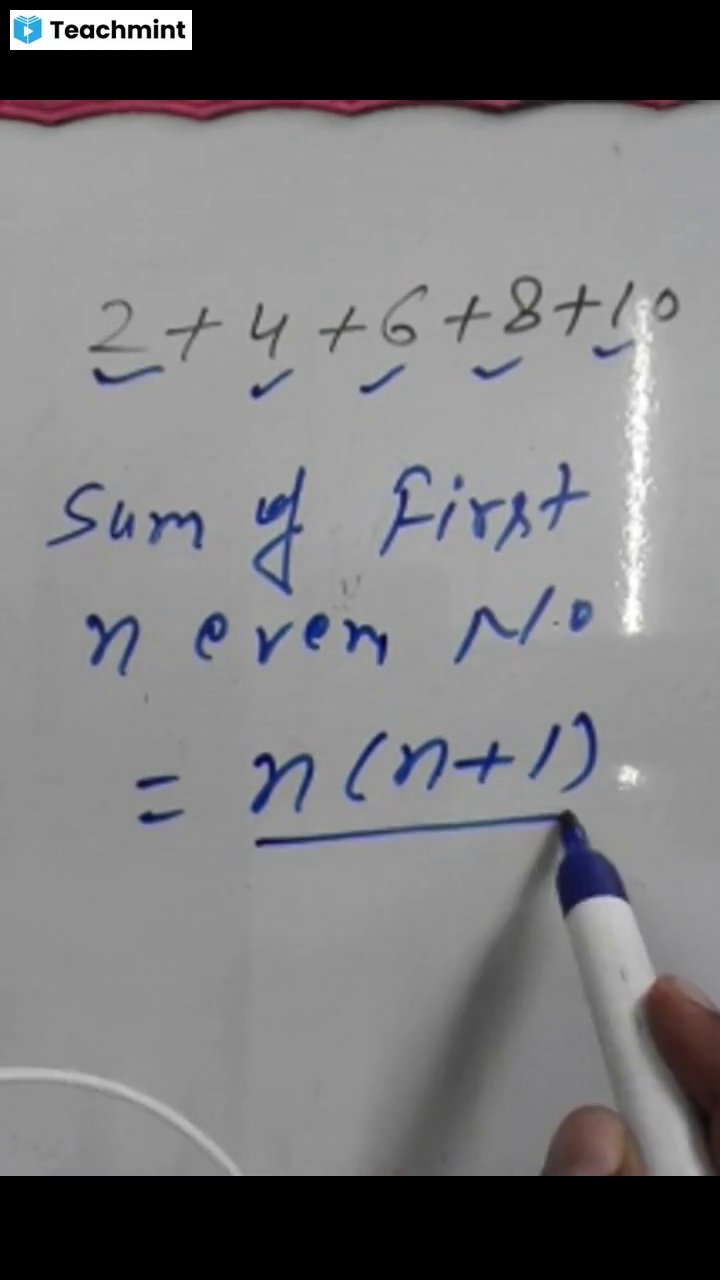 Teachmint
2 + 4 + 6 + 8 + 10
Sum of First
n even No
= n(n+1)